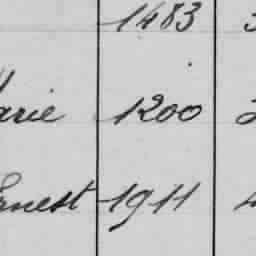 1483
Marie 1200
Ernest 1911